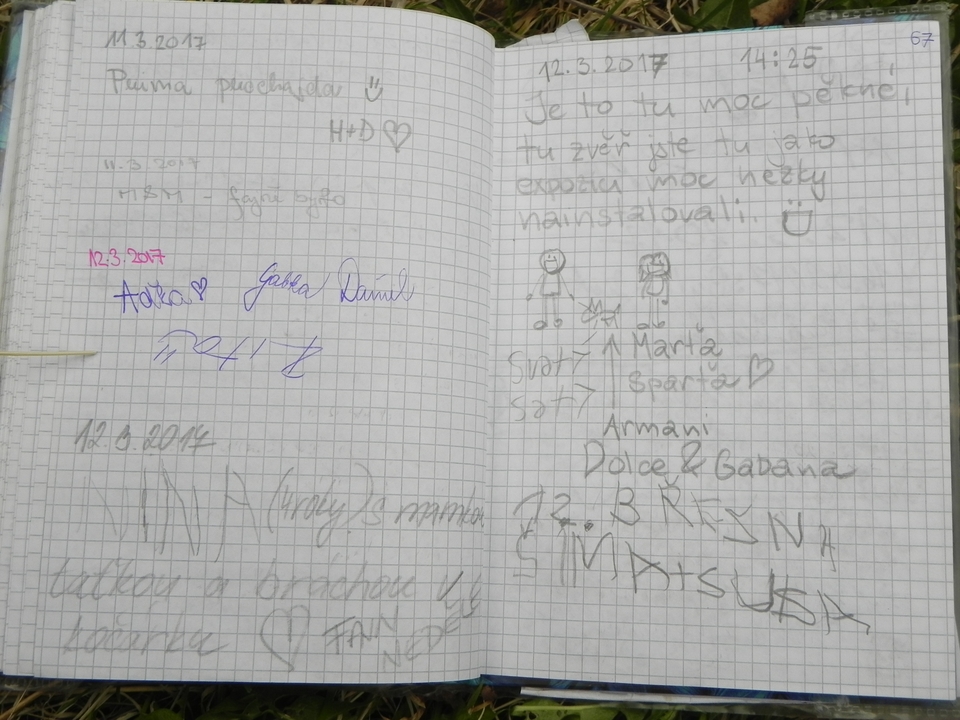 11.3.2017
Prima procházda
H+D
11.3.2017
MBM - fajně było
12.3.2017
Adka
Gabka Daniel
12.3.2017
NINA (4roky) s mamkou
taťkou a bráchou v
kočárku FAJN
67
12.3.2017 14:25
Je to tu moc pěkné,
tu zvěř jste tu jako
expozici moc hezky
nainstalovali.
Svatý Marťa
Sparťa
Armani
Dolce & Gabana
12. BŘEŠNA
ŠIMA+SUSA